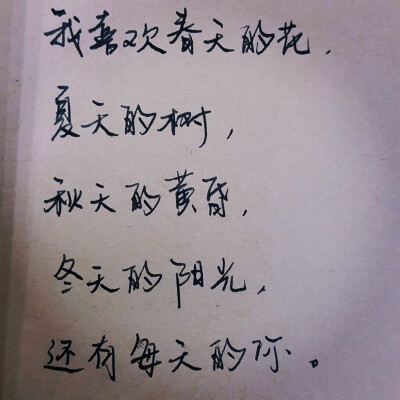 我喜欢春天的花，
夏天的树，
秋天的黄昏，
冬天的阳光，
还有每天的你。